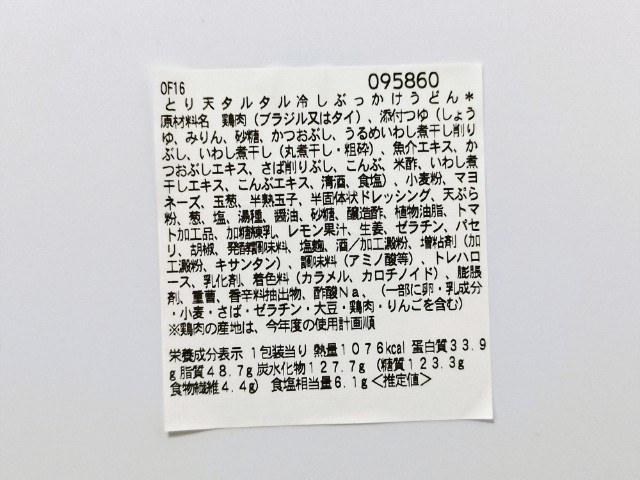 OF16
095860
とり天タルタル冷しぶっかけうどん*
原材料名 鶏肉(ブラジル又はタイ)、添付つゆ(しょう
ゆ、みりん、砂糖、かつおぶし、うるめいわし煮干し削り
ぶし、いわし煮干し(丸煮干し・粗砕)、魚介エキス、か
つおぶしエキス、さば削りぶし、こんぶ、米酢、いわし煮
干しエキス、こんぶエキス、清酒、食塩)、小麦粉、マヨ
ネーズ、玉葱、半熟玉子、半固体状ドレッシング、天ぷら
粉、葱、塩、湯種、醤油、砂糖、醸造酢、植物油脂、トマ
ト加工品、加糖練乳、レモン果汁、生姜、ゼラチン、パセ
リ、胡椒、発酵調味料、塩麹、酒/加工澱粉、増粘剤(加
工澱粉、キサンタン)、調味料(アミノ酸等)、トレハロ
ース、乳化剤、着色料(カラメル、カロチノイド)、膨脹
剤、重曹、香辛料抽出物、酢酸Na、(一部に卵・乳成分
・小麦・さば・ゼラチン・大豆・鶏肉・りんごを含む)
※鶏肉の産地は、今年度の使用計画順
栄養成分表示 1包装当り 熱量1076kcal 蛋白質33.9
g 脂質48.7g 炭水化物127.7g(糖質123.3g
食物繊維4.4g) 食塩相当量6.1g<推定値>